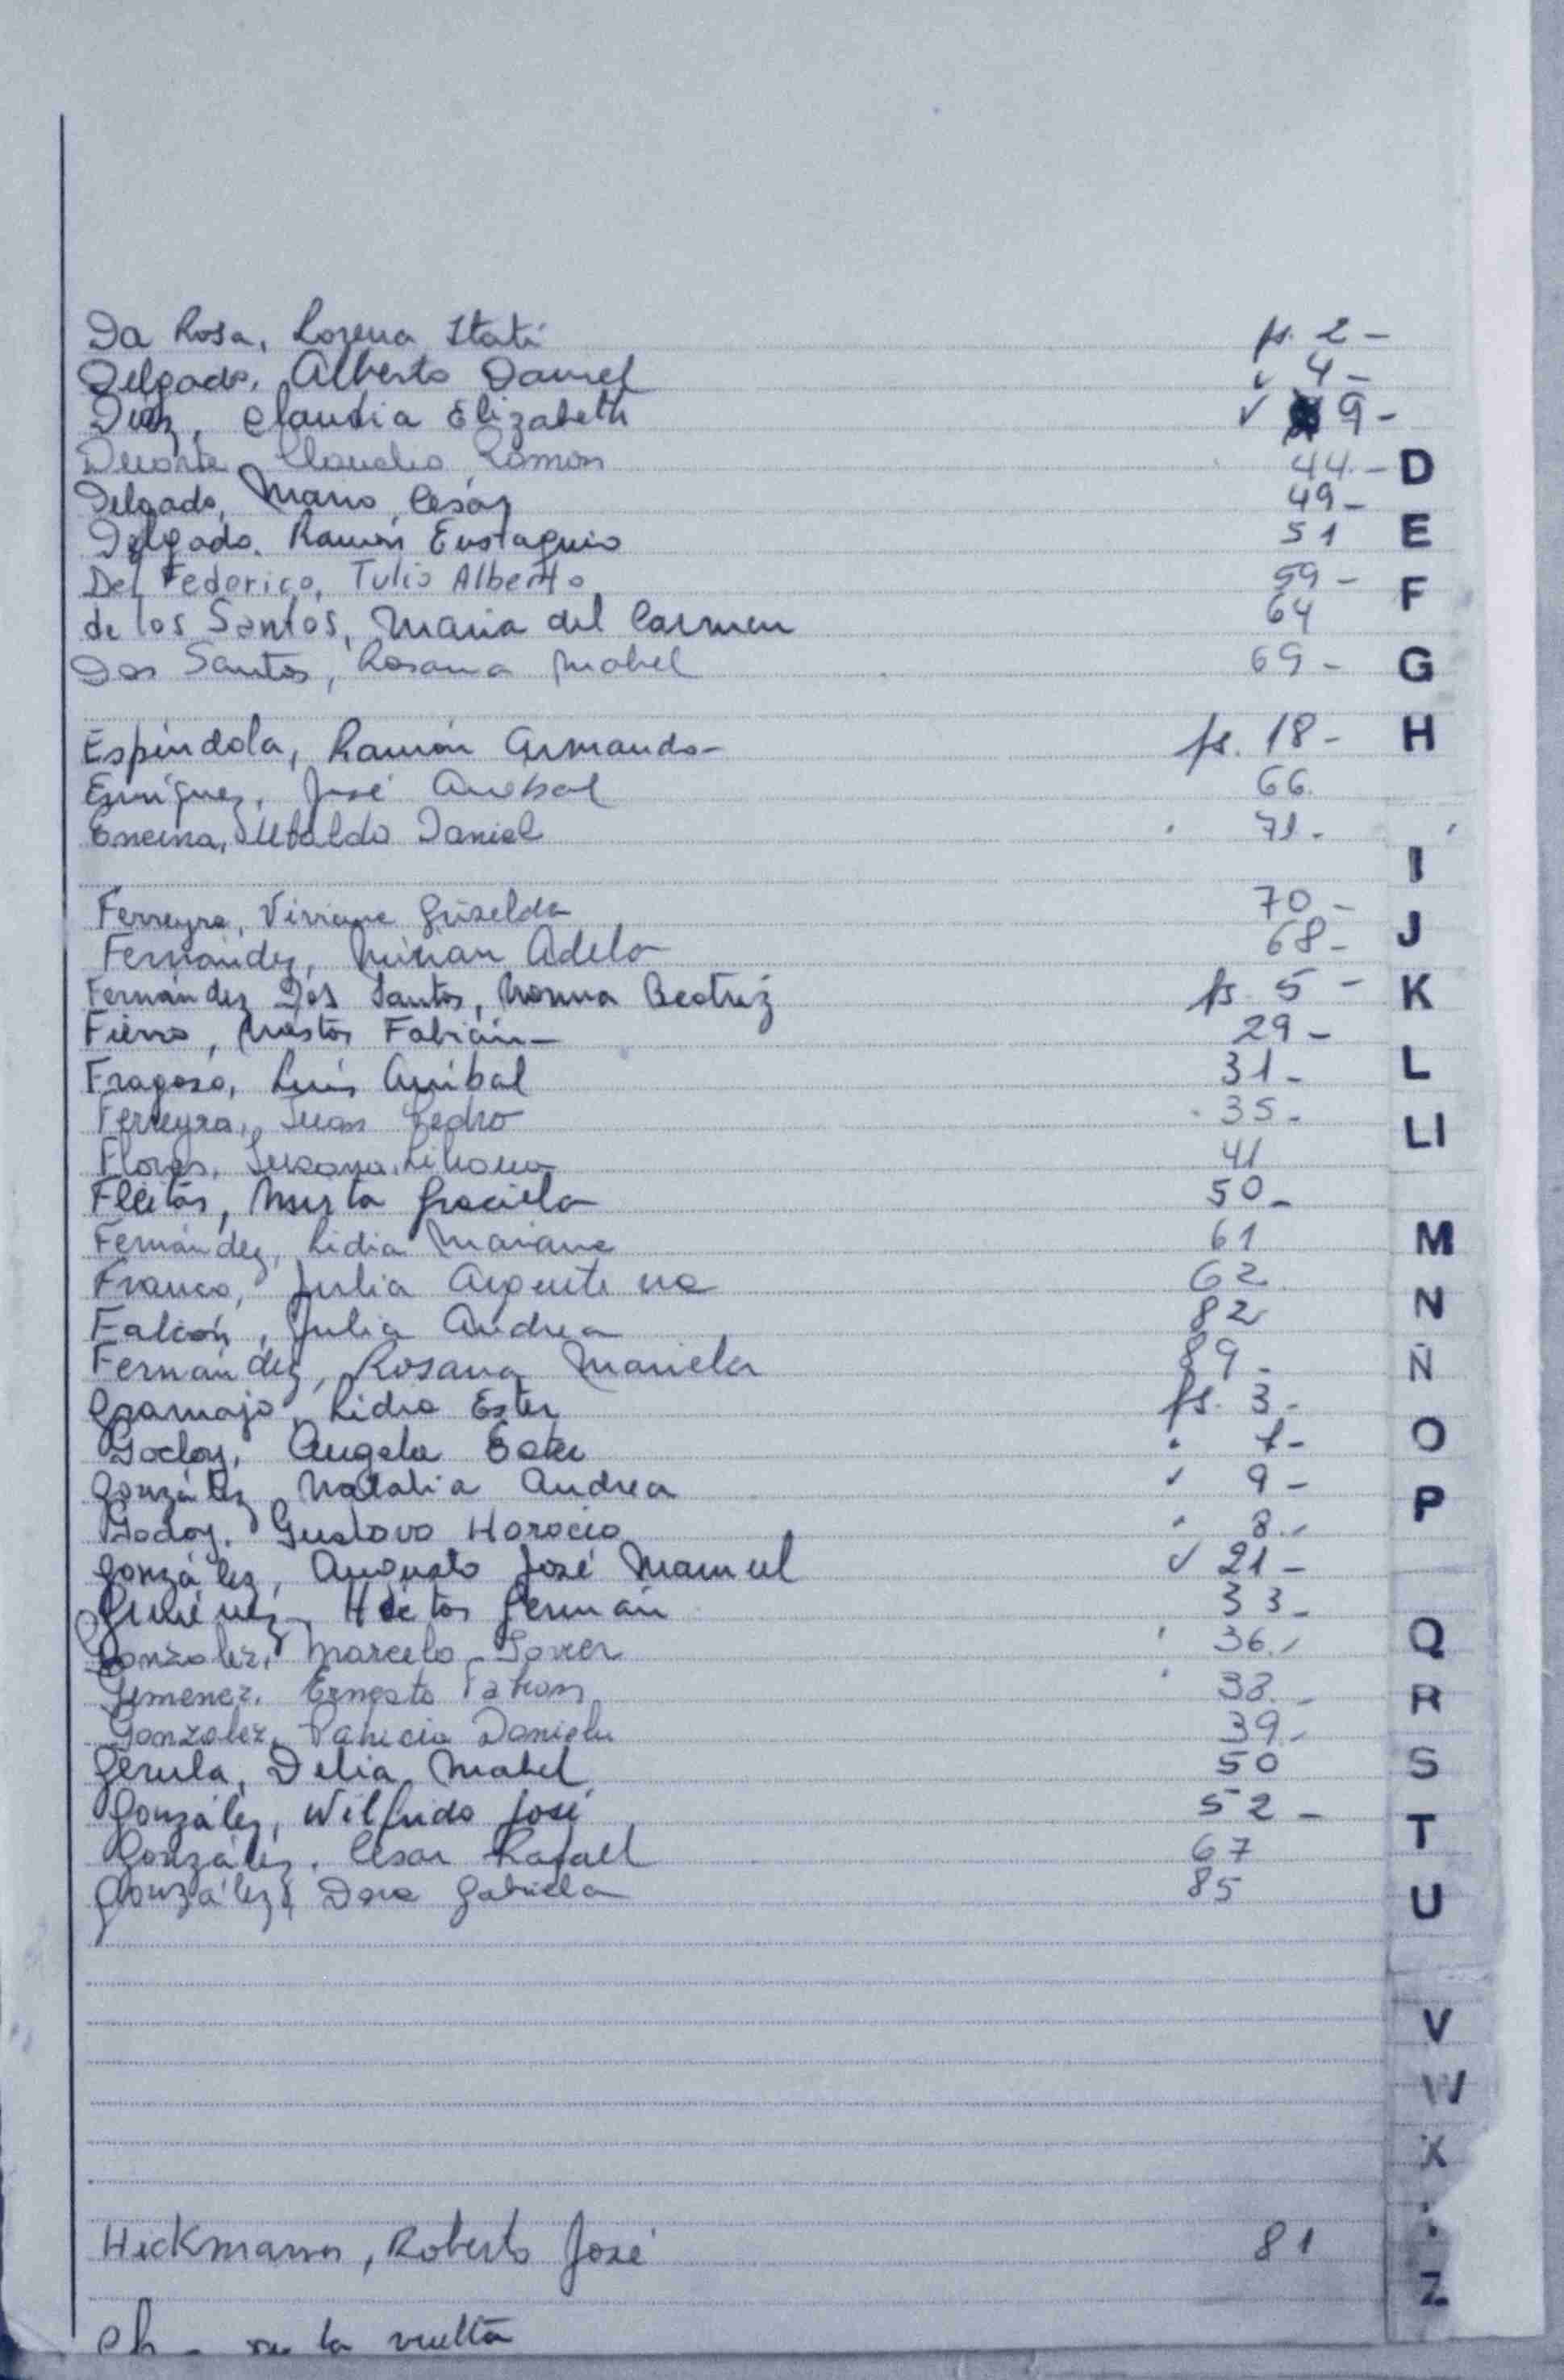 Da Rosa, Lorena Itatí fs. 2 -
Delgado, Alberto Daniel ✓ 4 -
Diaz, Claudia Elizabeth ✓ 9 -
Duarte Claudio Ramon 44 - D
Delgado, Mario Cesar 49 -
Delgado, Ramón Eustaquio 51 E
Del Federico, Tulio Alberto 59 -
de los Santos, María del Carmen 64 F
Dos Santos, Rosana Mabel 69 - G
Espíndola, Ramón Armando - fs. 18 - H
Enríquez, José Anibal 66
Encina, Ubaldo Daniel 71 -
I
Ferreyra, Viviana Griselda 70 -
Fernández, Mirian Adela 68 - J
Fernández Dos Santos, Norma Beatriz fs. 5 - K
Fierro, Nestor Fabián - 29 -
Fragoso, Luis Anibal 31 - L
Ferreyra, Juan Pedro 35 -
Flores, Susana Liliana 41 Ll
Fleitas, Mirta Graciela 50 -
Fernández, Lidia Mariana 61 M
Franco, Julia Argentina 62
Falcón, Julia Andrea 82 N
Fernández, Rosana Mariela 89 - Ñ
Gramajo, Lidia Ester fs. 3 -
Godoy, Angela Ester 7 - O
González Natalia Andrea ✓ 9 -
Godoy, Gustavo Horacio 8 - P
González, Augusto José Manuel ✓ 21 -
Giménez Hector Germán 33 -
Gonzalez, Marcelo Javier 36 - Q
Gimenez, Ernesto Fabian 38 - R
Gonzalez, Patricia Daniela 39 -
Gerula, Delia Mabel 50 S
González, Wilfrido José 52 -
González, Cesar Rafael 67 T
González, Dora Gabriela 85 U
V
W
X
Hickmann, Roberto José 81
Z
Ch - en la vuelta